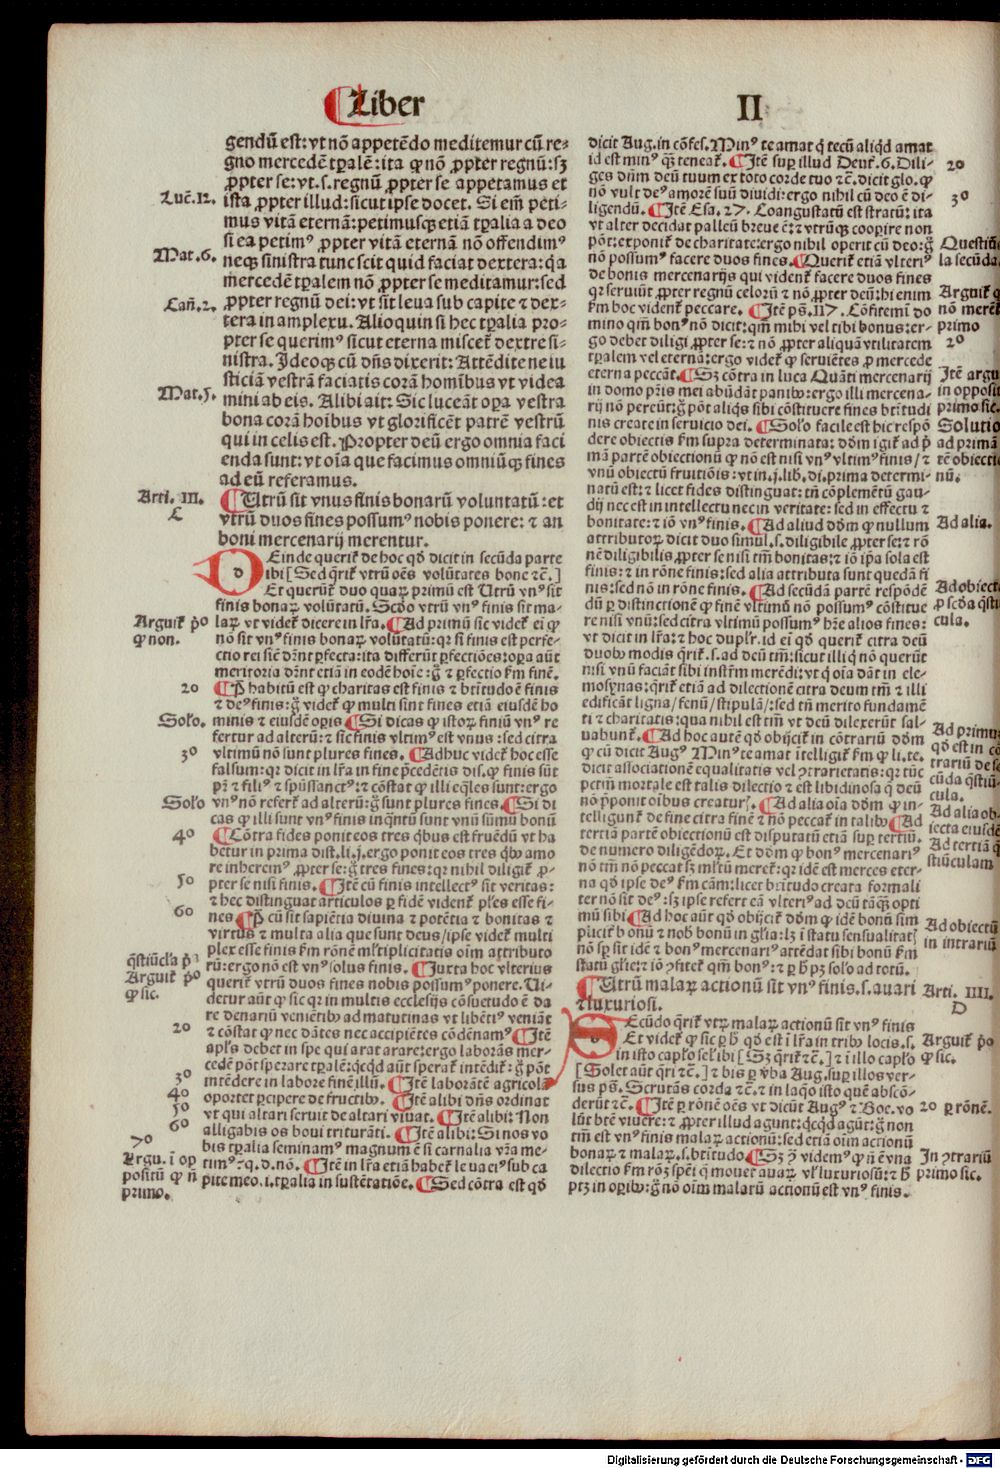 Liber
II
gendū est: vt nō appetēdo meditemur cū re⸗
gno mercedē tp̄alē: ita ꝙ nō ꝓpter regnū: sꝫ
ꝓpter se: vt .s. regnū ꝓpter se appetamus et
Luc̄. 12.
ista ꝓpter illud: sicut ipse docet. Si em̄ peti⸗
mus vitā eternā: petimusqꝫ etiā tp̄alia a deo
si ea petimꝰ ꝓpter vitā eternā nō offendimꝰ
Mat. 6.
neqꝫ sinistra tunc scit quid faciat dextera: qa
mercedē tp̄alem nō ꝓpter se meditamur: sed
Can̄. 2.
ꝓpter regnū dei: vt sit leua sub capite ⁊ dex⸗
tera in amplexu. Alioquin si hec tp̄alia pro⸗
pter se querimꝰ sicut eterna miscet̄ dextre si⸗
nistra. Ideoqꝫ cū dn̄s dixerit: Attēdite ne iu
sticiā vestrā faciatis corā homībus vt videa
Mat. 5.
mini ab eis. Alibi ait: Sic luceāt oꝑa vestra
bona corā hoībus vt glorificēt patrē vestrū
qui in celis est. Propter deū ergo omnia faci
enda sunt: vt oīa que facimus omniūqꝫ fines
ad eū referamus.
Arti. III.
C
¶ Utrū sit vnus finis bonarū voluntatū: et
vtrū duos fines possumꝰ nobis ponere: ⁊ an
boni mercenarij merentur.
Deinde querit̄ de hoc qd̄ dicit in secūda parte
ibi [Sed q̄rit̄ vtrū oēs volūtates bone ⁊c̄.]
Et querūt̄ duo quaꝝ primū est Utrū vnꝰ sit
finis bonaꝝ volūtatū. Scd̄o vtrū vnꝰ finis sit ma⸗
Arguit̄ p̄o
ꝙ non.
laꝝ vt videt̄ dicere in lr̄a. ¶ Ad primū sic videt̄ ei ꝙ
nō sit vnꝰ finis bonaꝝ volūtatū: qr si finis est perfe⸗
ctio rei sic̄ dn̄t ꝑfecta: ita differūt ꝑfectiōes: oꝑa aūt
meritoria dn̄t etiā in eodē hoīe: g̊ ⁊ ꝑfectio fm̄ finē.
2o
¶ P̄ habitū est ꝙ charitas est finis ⁊ br̄titudo ē finis
⁊ deꝰ finis: g̊ videt̄ ꝙ multi sint fines etiā eiusdē ho
Solo.
minis ⁊ eiusdē opis ¶ Si dicas ꝙ istoꝝ finiū vnꝰ re
fertur ad alterū: ⁊ sic finis vltimꝰ est vnus: sed citra
3o
vltimū nō sunt plures fines. ¶ Adhuc videt̄ hoc esse
falsum: qr dicit in lr̄a in fine p̄cedētis dis. ꝙ finis sūt
pr̄ ⁊ filiꝰ ⁊ spūssanctꝰ: ⁊ cōstat ꝙ illi eq̄les sunt: ergo
Solo
vnꝰ nō refert̄ ad alterū: g̊ sunt plures fines. ¶ Si di
cas ꝙ illi sunt vnꝰ finis inq̄ntū sunt vnū sūmū bonū
4o
¶ Cōtra fides ponit eos tres q̄bus est fruēdū vt ha
betur in prima dist. li. j. ergo ponit eos tres q̄bꝫ amo
re inherem̄ ꝓpter se: g̊ tres fines: qr nihil diligit̄ ꝓ⸗
5o
pter se nisi finis. ¶ Itē cū finis intellectꝰ sit veritas:
⁊ hec distinguat articulos ꝑ fidē vident̄ pl̄es esse fi⸗
6o
nes ¶ P̄ cū sit sapiētia diuina ⁊ potētia ⁊ bonitas ⁊
virtus ⁊ multa alia que sunt deus / ipse videt̄ multi
plex esse finis fm̄ rōnē ml̄tiplicitatis oīm attributo
q̄stiūcl̄a p̄a
rū: ergo nō est vnꝰ solus finis. ¶ Juxta hoc vlterius
Arguit̄ p̄o
ꝙ sic.
querit̄ vtrū duos fines nobis possumꝰ ponere. Ui⸗
detur aūt ꝙ sic qr in multis ecclesijs cōsuetudo ē da
re denariū veniētibꝫ ad matutinas vt libētiꝰ veniāt
2o
⁊ cōstat ꝙ nec dātes nec accipiētes cōdēnamꝰ ¶ Itē
apl̄s debet in spe qui arat arare: ergo laborās mer⸗
cedē pōt sperare tp̄alē: qcqd̄ aūt sperat̄ intēdit̄: g̊ pōt
3o
intēdere in labore finē illū. ¶ Itē laborātē agricolā
4o
oportet ꝑcipere de fructibꝫ. ¶ Itē alibi dn̄s ordinat
5o
vt qui altari seruit de altari viuat. ¶ Itē alibi: Non
6o
alligabis os boui triturāti. ¶ Itē alibi: Si nos vo
7o
bis tp̄alia seminamꝰ magnum ē si carnalia vr̄a me⸗
Argu. ī op
positū ꝙ n̄
primo.
timꝰ ⁊ .q. d. nō. ¶ Itē in lr̄a etiā habet̄ leua eiꝰ sub ca
pite meo .i. tp̄alia in sustētatiōe. ¶ Sed cōtra est qd̄
dicit Aug. in cōfes. Minꝰ te amat q̇ tecū aliqd̄ amat
2o
id est minꝰ q̄ teneat̄. ¶ Itē suꝑ illud Deut̄. 6. Dili⸗
ges dn̄m deū tuum ex toto corde tuo ⁊c̄. dicit glo. ꝙ
3o
nō vult deꝰ amorē suū diuidi: ergo nihil cū deo ē di⸗
ligendū. ¶ Itē Esa. 27. Coangustatū est stratū: ita
vt alter decidat palleū breue ē: ⁊ vtrūqꝫ coopire non
Questiū
la secūda
pōt: exponit̄ de charitate: ergo nihil operit cū deo: g̊
nō possumꝰ facere duos fines. ¶ Querit̄ etiā vlteriꝰ
de bonis mercenarijs qui vident̄ facere duos fines
Arguit̄ q
nō merēt̄
primo
qr seruiūt ꝓpter regnū celorū ⁊ nō ꝓpter deū: hi enim
fm̄ hoc vident̄ peccare. ¶ Itē ps̄. 117. Cōfitemī do
mino qm̄ bonꝰ nō dicit: qm̄ mihi vel tibi bonus: er⸗
2o
go debet diligi ꝓpter se: ⁊ nō ꝓpter aliquā vtilitatem
tp̄alem vel eternā: ergo videt̄ ꝙ seruiētes ꝓ mercede
Itē argu
in opposit
primo sic.
eterna peccāt. ¶ Sꝫ cōtra in luca Quāti mercenarij
in domo pr̄is mei abūdāt panibꝫ: ergo illi mercena⸗
rij nō pereūt: g̊ pōt aliq̄s sibi cōstituere fines br̄titudi
Solutio
ad primā
tē obiectio
nū.
nis create in seruicio dei. ¶ Solo facile est hic respō
dere obiectis fm̄ supra determinata: dōm igit̄ ad p̄
mā partē obiectionū ꝙ nō est nisi vnꝰ vltimꝰ finis / ⁊
vnū obiectū fruitiōis: vt in .j. lib. di. prima determi⸗
natū est: ⁊ licet fides distinguat: tn̄ cōplementū gau⸗
dij nec est in intellectu nec in veritate: sed in effectu ⁊
Ad alia.
bonitate: ⁊ iō vnꝰ finis. ¶ Ad aliud dōm ꝙ nullum
attributoꝝ dicit duo simul .s. diligibile ꝓpter se: ⁊ rō
nē diligibilis ꝓpter se nisi tm̄ bonitas: ⁊ iō ip̄a sola est
finis: ⁊ in rōne finis: sed alia attributa sunt quedā fi
Ad obiect
ꝓ scd̄a q̄sti
cula.
nis: sed nō in rōne finis. ¶ Ad secūdā partē respōdē
dū ꝑ distinctionē ꝙ finē vltimū nō possumꝰ cōstitue
re nisi vnū: sed citra vltimū possumꝰ hr̄e alios fines:
vt dicit in lr̄a: ⁊ hoc duplr̄. id ei qd̄ querit̄ citra deū
duobꝫ modis q̄rit̄ .s. ad deū tm̄: sicut illi q̇ nō querūt
nisi vnū faciāt sibi instr̄m merēdi: vt q̇ oīa dāt in ele⸗
mosynas: q̄rit̄ etiā ad dilectionē citra deum tm̄ ⁊ illi
edificāt ligna / fenū / stipulā / : sed tn̄ merito fundamē
ti ⁊ charitatis: qua nihil est tm̄ vt deū dilexerūt sal⸗
Ad primu
qd̄ est in cō
trariū de se
cūda q̄stiū⸗
cula.
uabunt̄. ¶ Ad hoc autē qd̄ obijcit̄ in cōtrariū dōm
ꝙ cū dicit Augꝰ Minꝰ te amat ītelligit̄ fm̄ ꝙ li. te.
dicit associationē equalitatis vel ꝯtrarietatis: qr tūc
petm̄ mortale est talis dilectio ⁊ est libidinosa q̄ deū
nō p̄ponit oībus creaturꝭ. ¶ Ad alia oīa dōm ꝙ in⸗
Ad alia ob
iecta eiusdē
telligunt̄ de fine citra finē ⁊ nō peccat̄ in talibꝫ ¶ Ad
Ad tertiā q̄
stiūculam
tertiā partē obiectionū est disputatū etiā suꝑ tertiū.
de numero diligēdoꝝ. Et dōm ꝙ bonꝰ mercenariꝰ
nō tm̄ nō peccat sꝫ ml̄tū meret̄: qr idē est merces eter⸗
na qd̄ ipse deꝰ fm̄ cām: licet br̄itudo creata formali
ter nō sit deꝰ: sꝫ ipse refert eā vlteriꝰ ad deū tāqꝫ opti
Ad obiectū
in intrariū
mū sibi ¶ Ad hoc aūt qd̄ obijcit̄ dōm ꝙ idē bonū sim
pliciṫ bonū ⁊ nob̄ bonū in gl̄ia: lꝫ ī statu sensualitatꝭ
nō sp̄ sit idē ⁊ bonꝰ mercenariꝰ attēdat sibi bonū fm̄
statū gl̄ie: ⁊ iō ꝯfitet̄ qm̄ bonꝰ: ⁊ ꝑ h̄ pꝫ solo ad totū.
¶ Utrū malaꝝ actionū sit vnꝰ finis .s. auari
⁊ luxuriosi.
Arti. IIII.
D
Secūdo q̄rit̄ vtꝝ malaꝝ actionū sit vnꝰ finis
Arguit̄ p̄o
ꝙ sic.
Et videt̄ ꝙ sic ꝑ h̄ qd̄ est ī lr̄a in tribꝫ locis .s.
in isto caplo sel̄ ibi [Sꝫ q̄rit̄ ⁊c̄.] ⁊ ī illo caplo
[Solet aūt q̄ri ⁊c̄.] ⁊ bis ꝑ v̄ba Aug. suꝑ illos ver⸗
sus ps̄. Scrutās corda ⁊c̄. ⁊ in laq̊ isto quē abscō⸗
2o ꝑ rōnē.
derūt ⁊c̄. ¶ Itē ꝑ rōnē oēs vt dicūt Augꝰ ⁊ Boe. vo
lūt bn̄ viuere: ⁊ ꝓpter illud agunt: qcqd̄ agūt: g̊ non
tm̄ est vnꝰ finis malaꝝ actionū: sed etiā oīm actionū
In ꝯtrariū
primo sic.
bonaꝝ ⁊ malaꝝ .s. btitudo ¶ Sꝫ ꝯ̄ videmꝰ ꝙ n̄ ē vna
dilectio fm̄ rōꝫ spēi q̄ mouet auaꝝ vl̄ luxuriosū: ⁊ h̄
ptꝫ in oꝑibꝫ: g̊ nō oīm malarū actionū est vnꝰ finis.
Digitalisierung gefördert durch die Deutsche Forschungsgemeinschaft - DFG